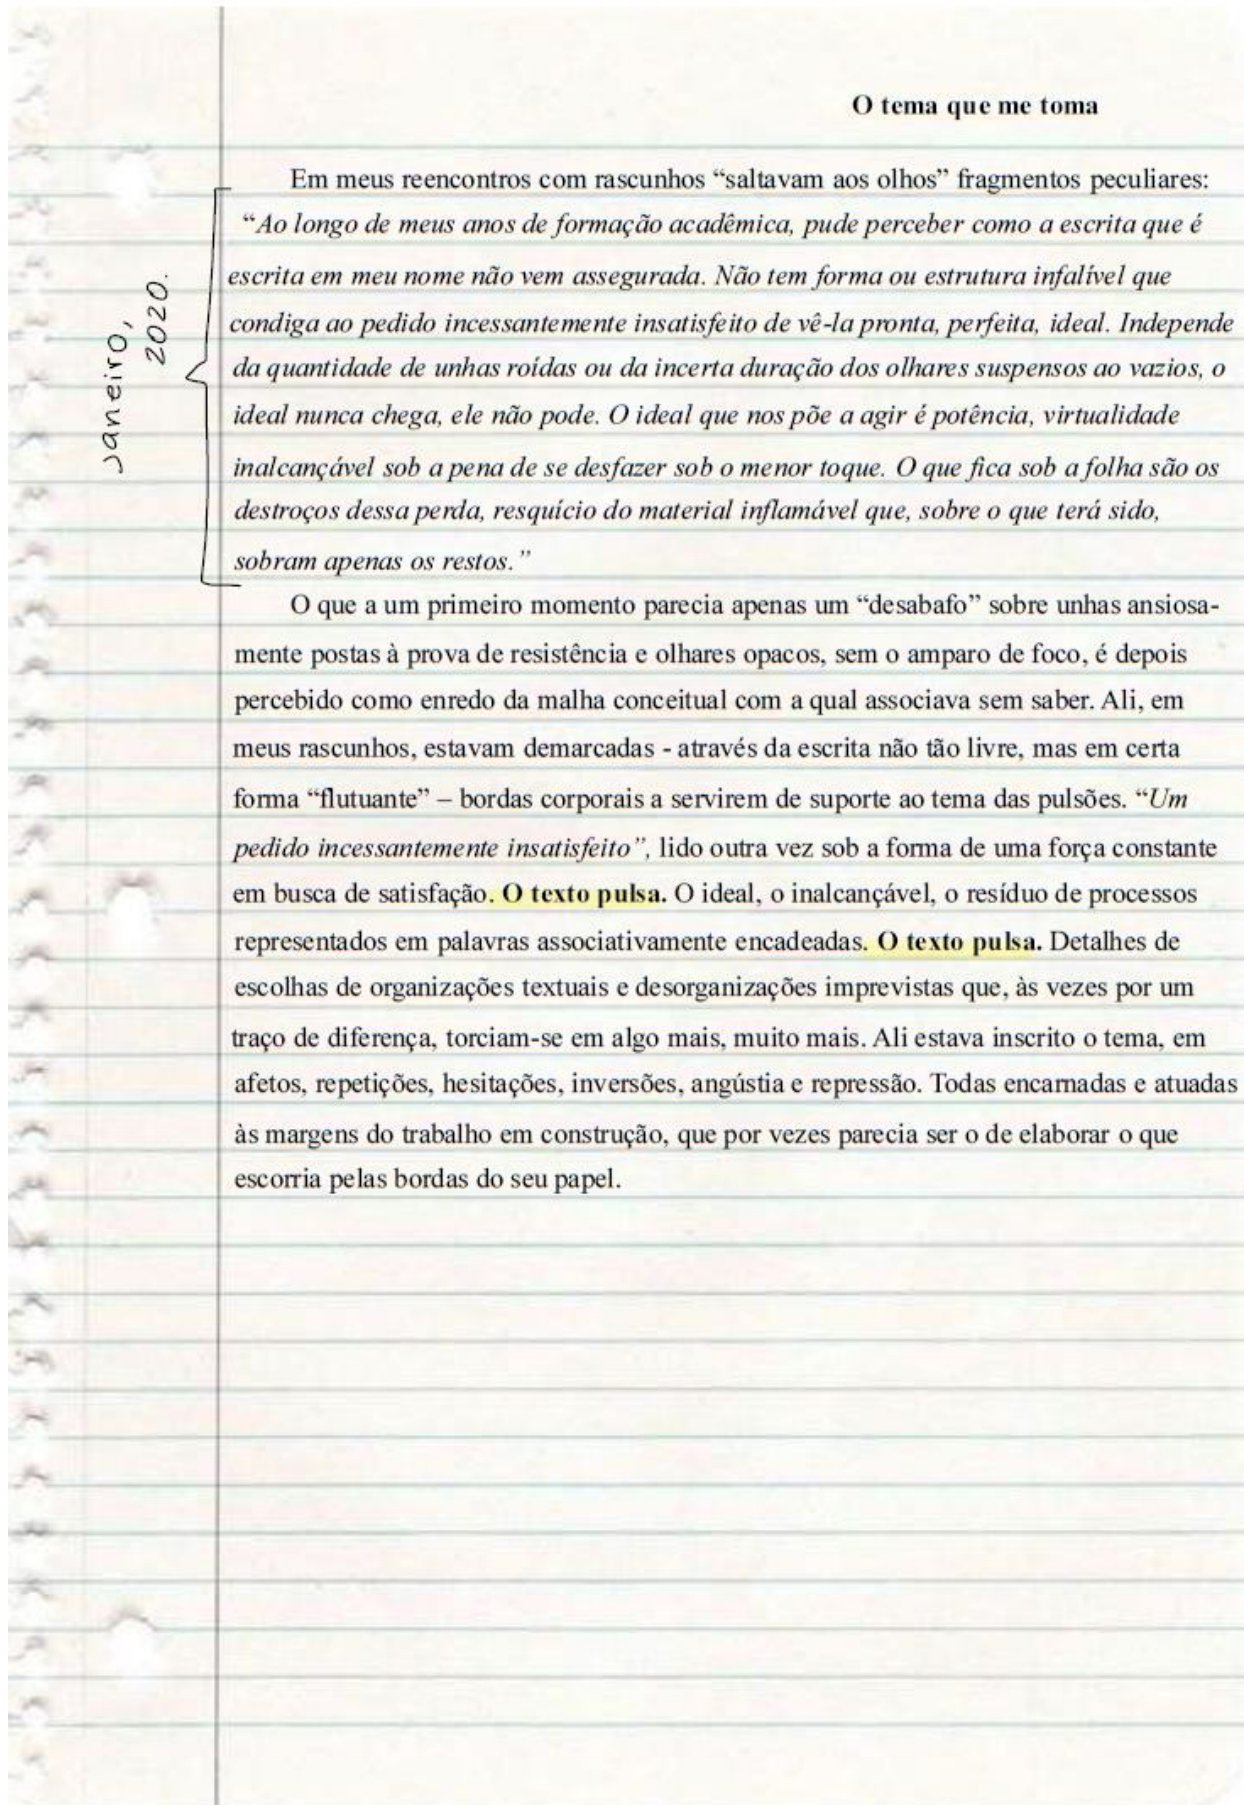 O tema que me toma
Em meus reencontros com rascunhos “saltavam aos olhos” fragmentos peculiares:
“Ao longo de meus anos de formação acadêmica, pude perceber como a escrita que é
escrita em meu nome não vem assegurada. Não tem forma ou estrutura infalível que
condiga ao pedido incessantemente insatisfeito de vê-la pronta, perfeita, ideal. Independe
da quantidade de unhas roídas ou da incerta duração dos olhares suspensos ao vazios, o
ideal nunca chega, ele não pode. O ideal que nos põe a agir é potência, virtualidade
inalcançável sob a pena de se desfazer sob o menor toque. O que fica sob a folha são os
destroços dessa perda, resquício do material inflamável que, sobre o que terá sido,
sobram apenas os restos.”
Janeiro,
2020.
O que a um primeiro momento parecia apenas um “desabafo” sobre unhas ansiosa-
mente postas à prova de resistência e olhares opacos, sem o amparo de foco, é depois
percebido como enredo da malha conceitual com a qual associava sem saber. Ali, em
meus rascunhos, estavam demarcadas - através da escrita não tão livre, mas em certa
forma “flutuante” – bordas corporais a servirem de suporte ao tema das pulsões. “Um
pedido incessantemente insatisfeito”, lido outra vez sob a forma de uma força constante
em busca de satisfação. O texto pulsa. O ideal, o inalcançável, o resíduo de processos
representados em palavras associativamente encadeadas. O texto pulsa. Detalhes de
escolhas de organizações textuais e desorganizações imprevistas que, às vezes por um
traço de diferença, torciam-se em algo mais, muito mais. Ali estava inscrito o tema, em
afetos, repetições, hesitações, inversões, angústia e repressão. Todas encarnadas e atuadas
às margens do trabalho em construção, que por vezes parecia ser o de elaborar o que
escorria pelas bordas do seu papel.